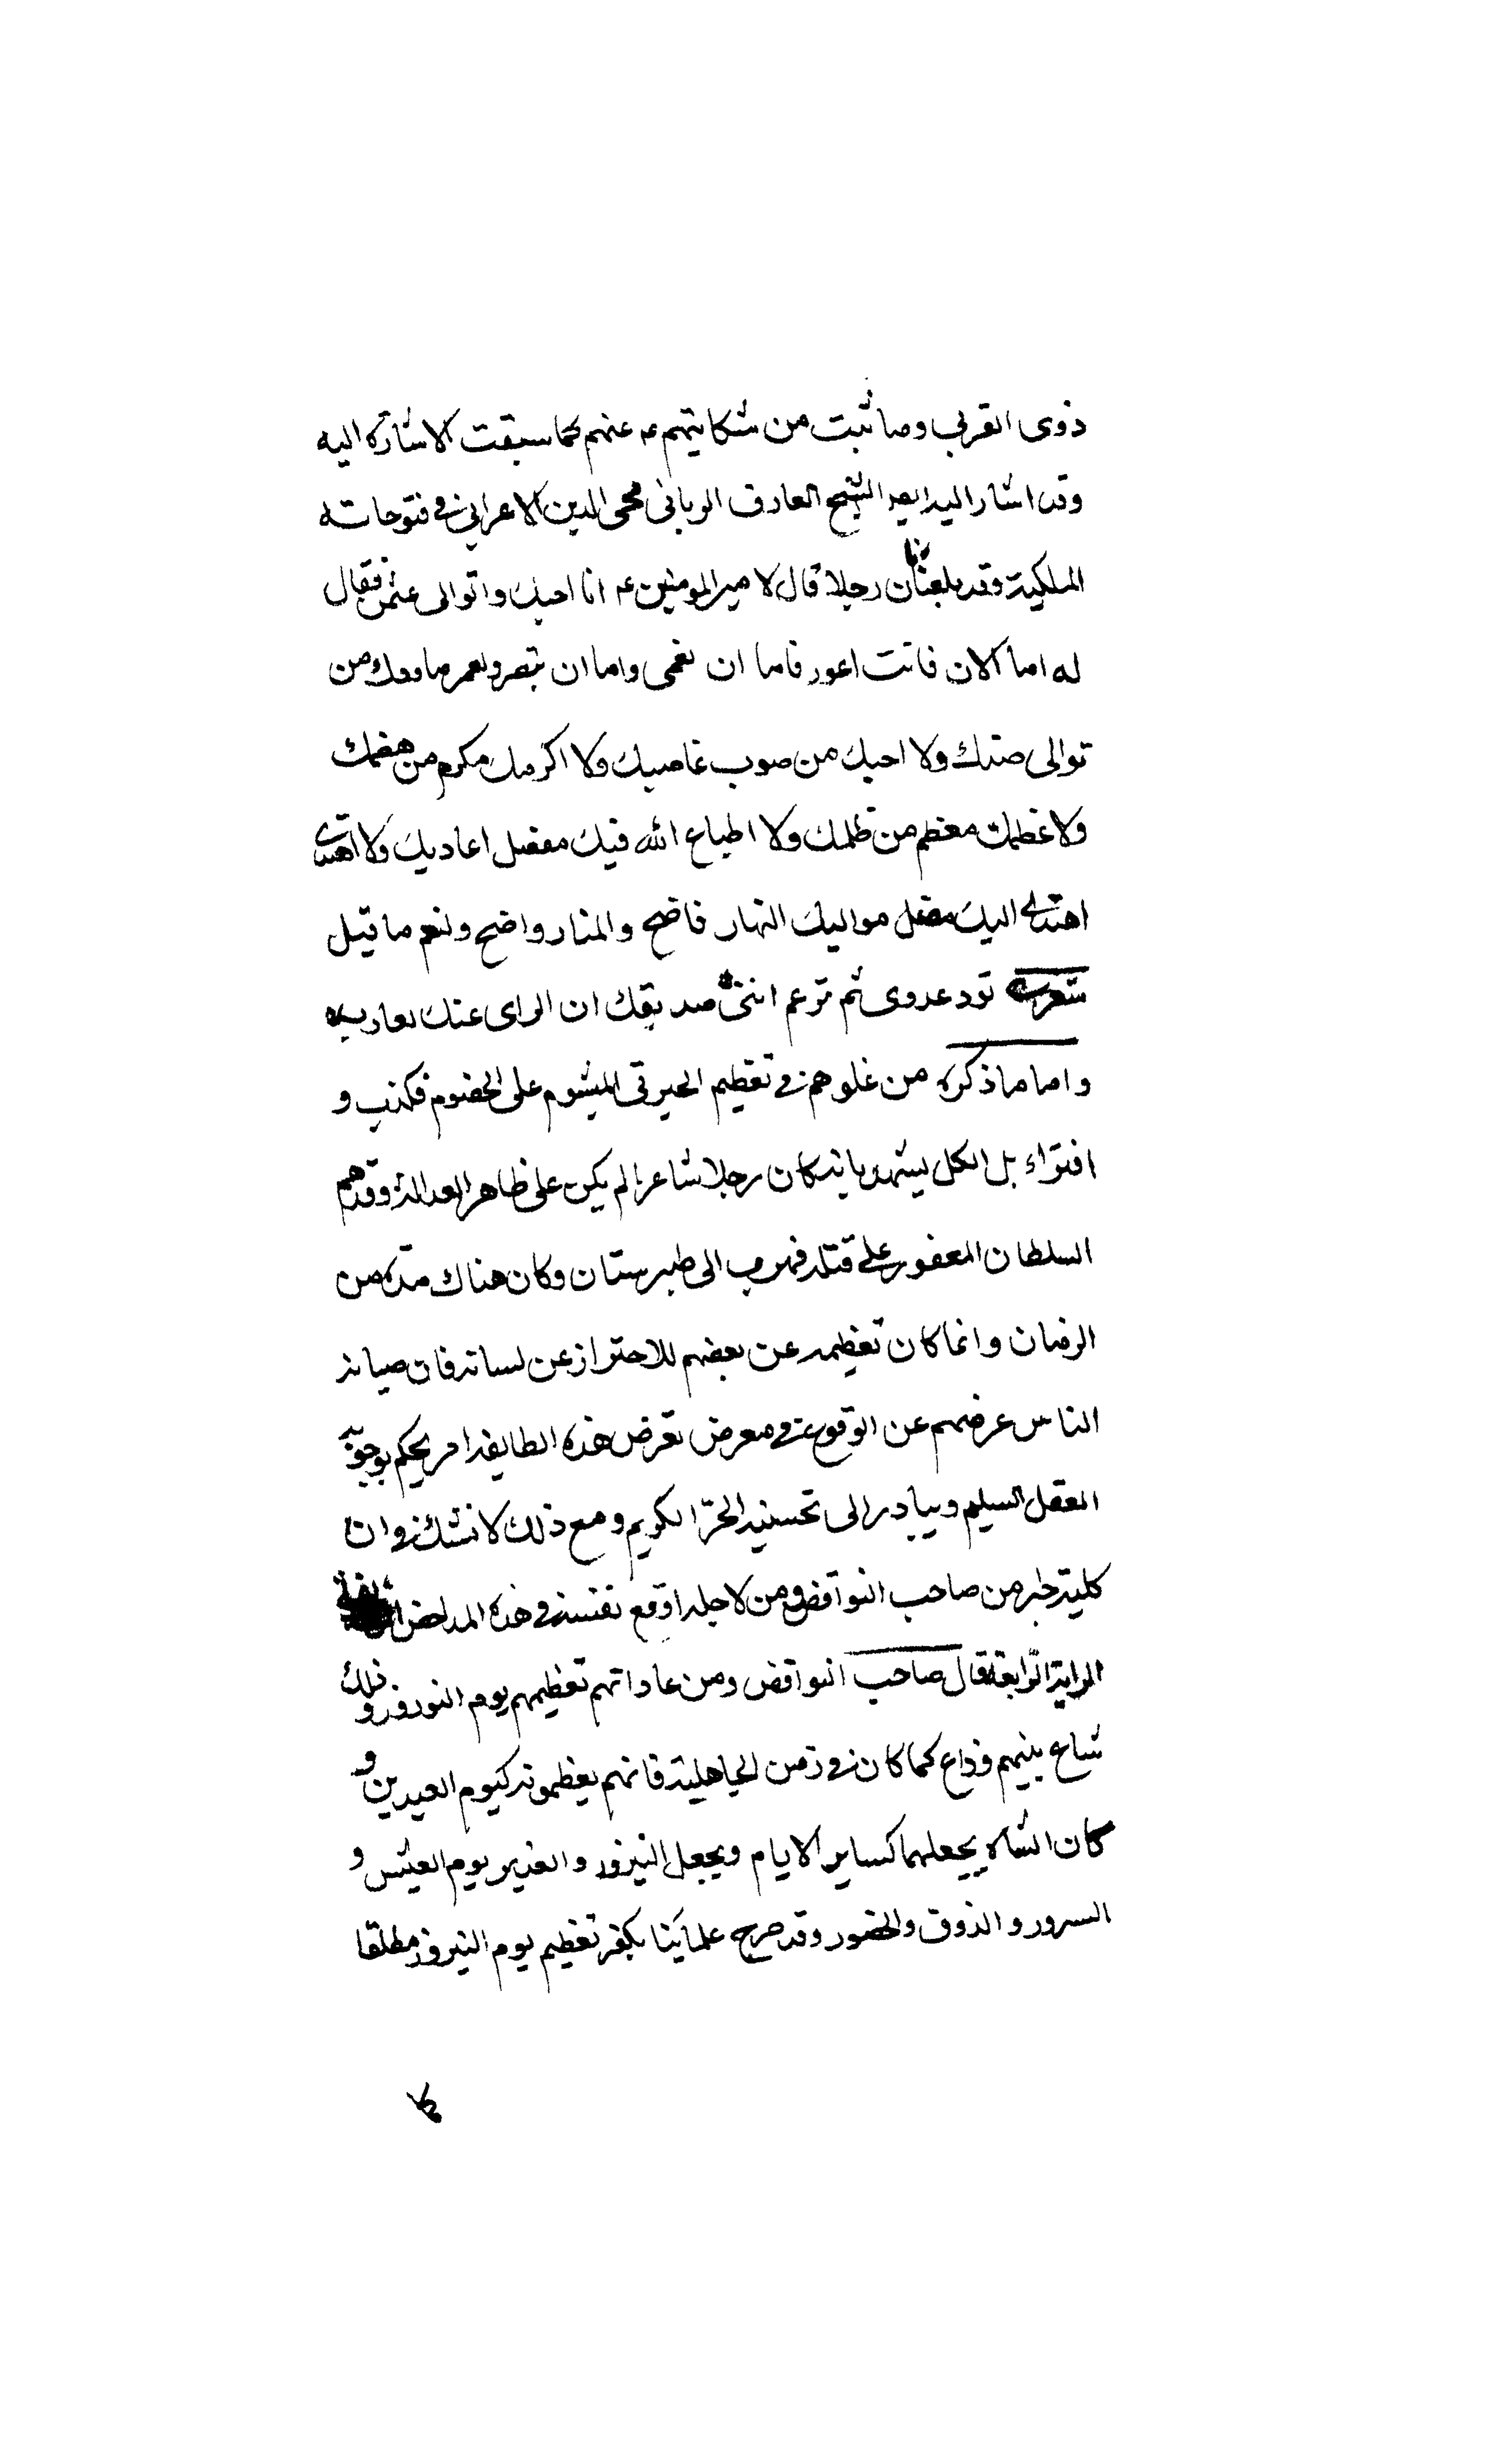 ذوى القربى وما ثبت من شكايتهم ع عنهم كما سبقت الاشارة اليه
وقد اشار اليه ايضا الشيخ العارف الربانى محى الدين الاعرابى فى فتوحاته
الملكية وقد بلغنا ان رجلا قال لامير المومنين ع انا احبك واتوالى عثمن فقال
له اما الان فانت اعور فاما ان تعمى واما ان تبصر ولعمر ما ودك من
توالى ضدك ولا احبك من صوب غاصبك ولا اكرمك مكرم من هضمك
ولا عظمك معظم من ظلمك ولا اطاع الله فيك مفضل اعاديك ولا اهتدى
اهتدى اليك مضلل مواليك النهار فاضح والمنار واضح ولنعم ما قيل
شعر تود عدوى ثم تزعم اننى صديقك ان الراى عنك لعازب
واما ما ذكره من غلوهم فى تعظيم الحيرتى الميشوم على الخضوم فكذب و
افتراء بل الكل يشهد بانه كان رجلا شاعرا لم يكن على ظاهر العدالة وقد هم
السلطان المغفور على قتله فهرب الى طبرستان وكان هناك مدة من
الزمان وانما كان تعظيمه عن بعضهم للاحتراز عن لسانه فان صيانة
الناس عرضهم عن الوقوع فى معرض تعرض هذه الطايفة امر يحكم بوجوبه
العقل السليم ويبادر الى تحسينه الحرّ الكريم ومع ذلك لا نشك فى ان
كلية خبر من صاحب النواقض ومن لاجله اوقع نفسه فى هذه المداحض
الراية الرابعة قال صاحب النواقض ومن عاداتهم تعظيمهم يوم النوروز وذلك
شاع بينهم وذاع كما كان فى زمن الجاهلية فانهم يعظمونه كيوم العيدين و
كان الشاه يجعلهما كساير الايام ويجعل النيروز والغدير يوم العيش و
السرور والذوق والحضور وقد صرح علمائنا بكفر تعظيم يوم النيروز مطلقا